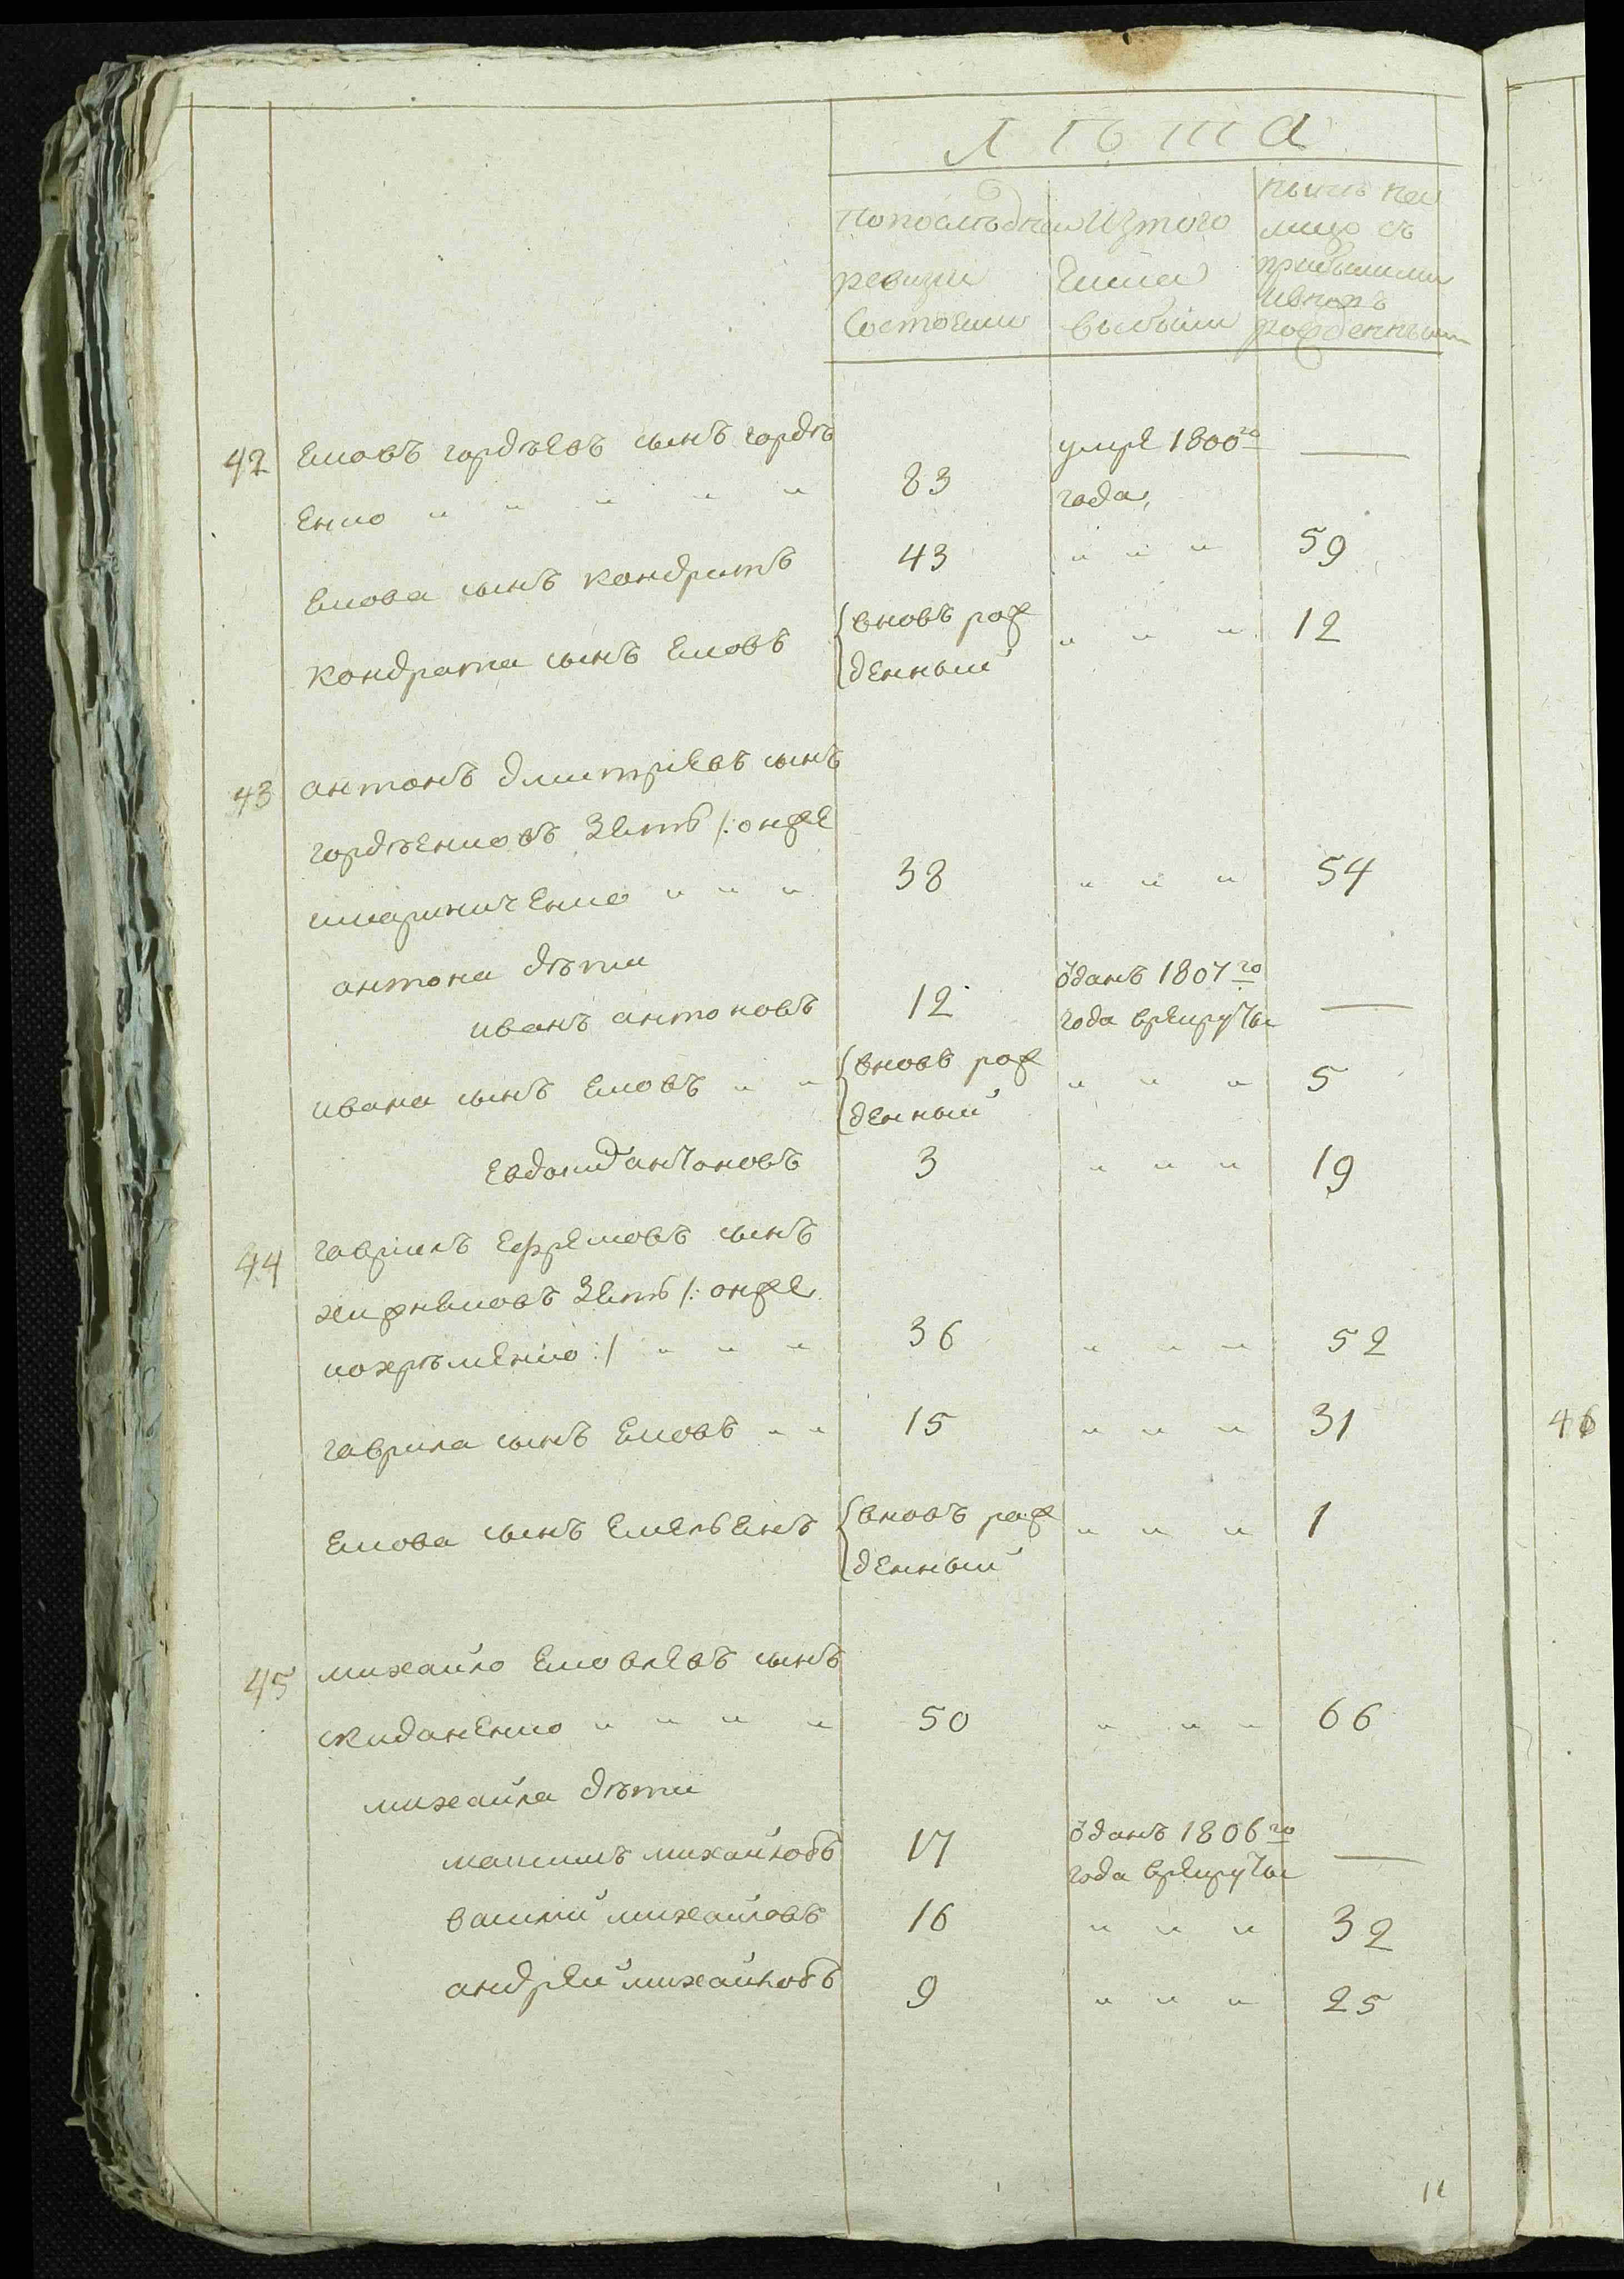 Лѣта
попослѣдней ревизiи состояли
изтого числа выбыли
нынѣ на лицо съ прибылыми ивновь рожденными
42 Яковъ гордѣевъ сынъ гордѣ
енко " " " " " 83 умре 1800го года, —
Якова сынъ кондратъ 43 " " " 59
кондрата сынъ Яковъ вновь рож денный " " " 12
43 антонъ дмитрiевъ сынъ
гордѣенковъ Зять /: онже
" " " 38 " " " 54
антона дѣти
иванъ антоновъ 12 ѿданъ 1807го года врекруты —
ивана сынъ Яковъ " " вновь рож денный " " " 5
евдокимъ антоновъ 3 " " " 19
44 гаврилъ ефремовъ сынъ
хижняковъ Зять /: онже
" " " 36 " " " 52
гаврила сынъ Яковъ " " 15 " " " 31
Якова сынъ Емельянъ вновь рож денный " " " 1
45 михайло Яковлевъ сынъ
скиданенко " " " " 50 " " " 66
михайла дѣти
максимъ михайловъ 17 ѿданъ 1806го года врекруты —
василiй михайловъ 16 " " " 32
андрей михайловъ 9 " " " 25
11
46